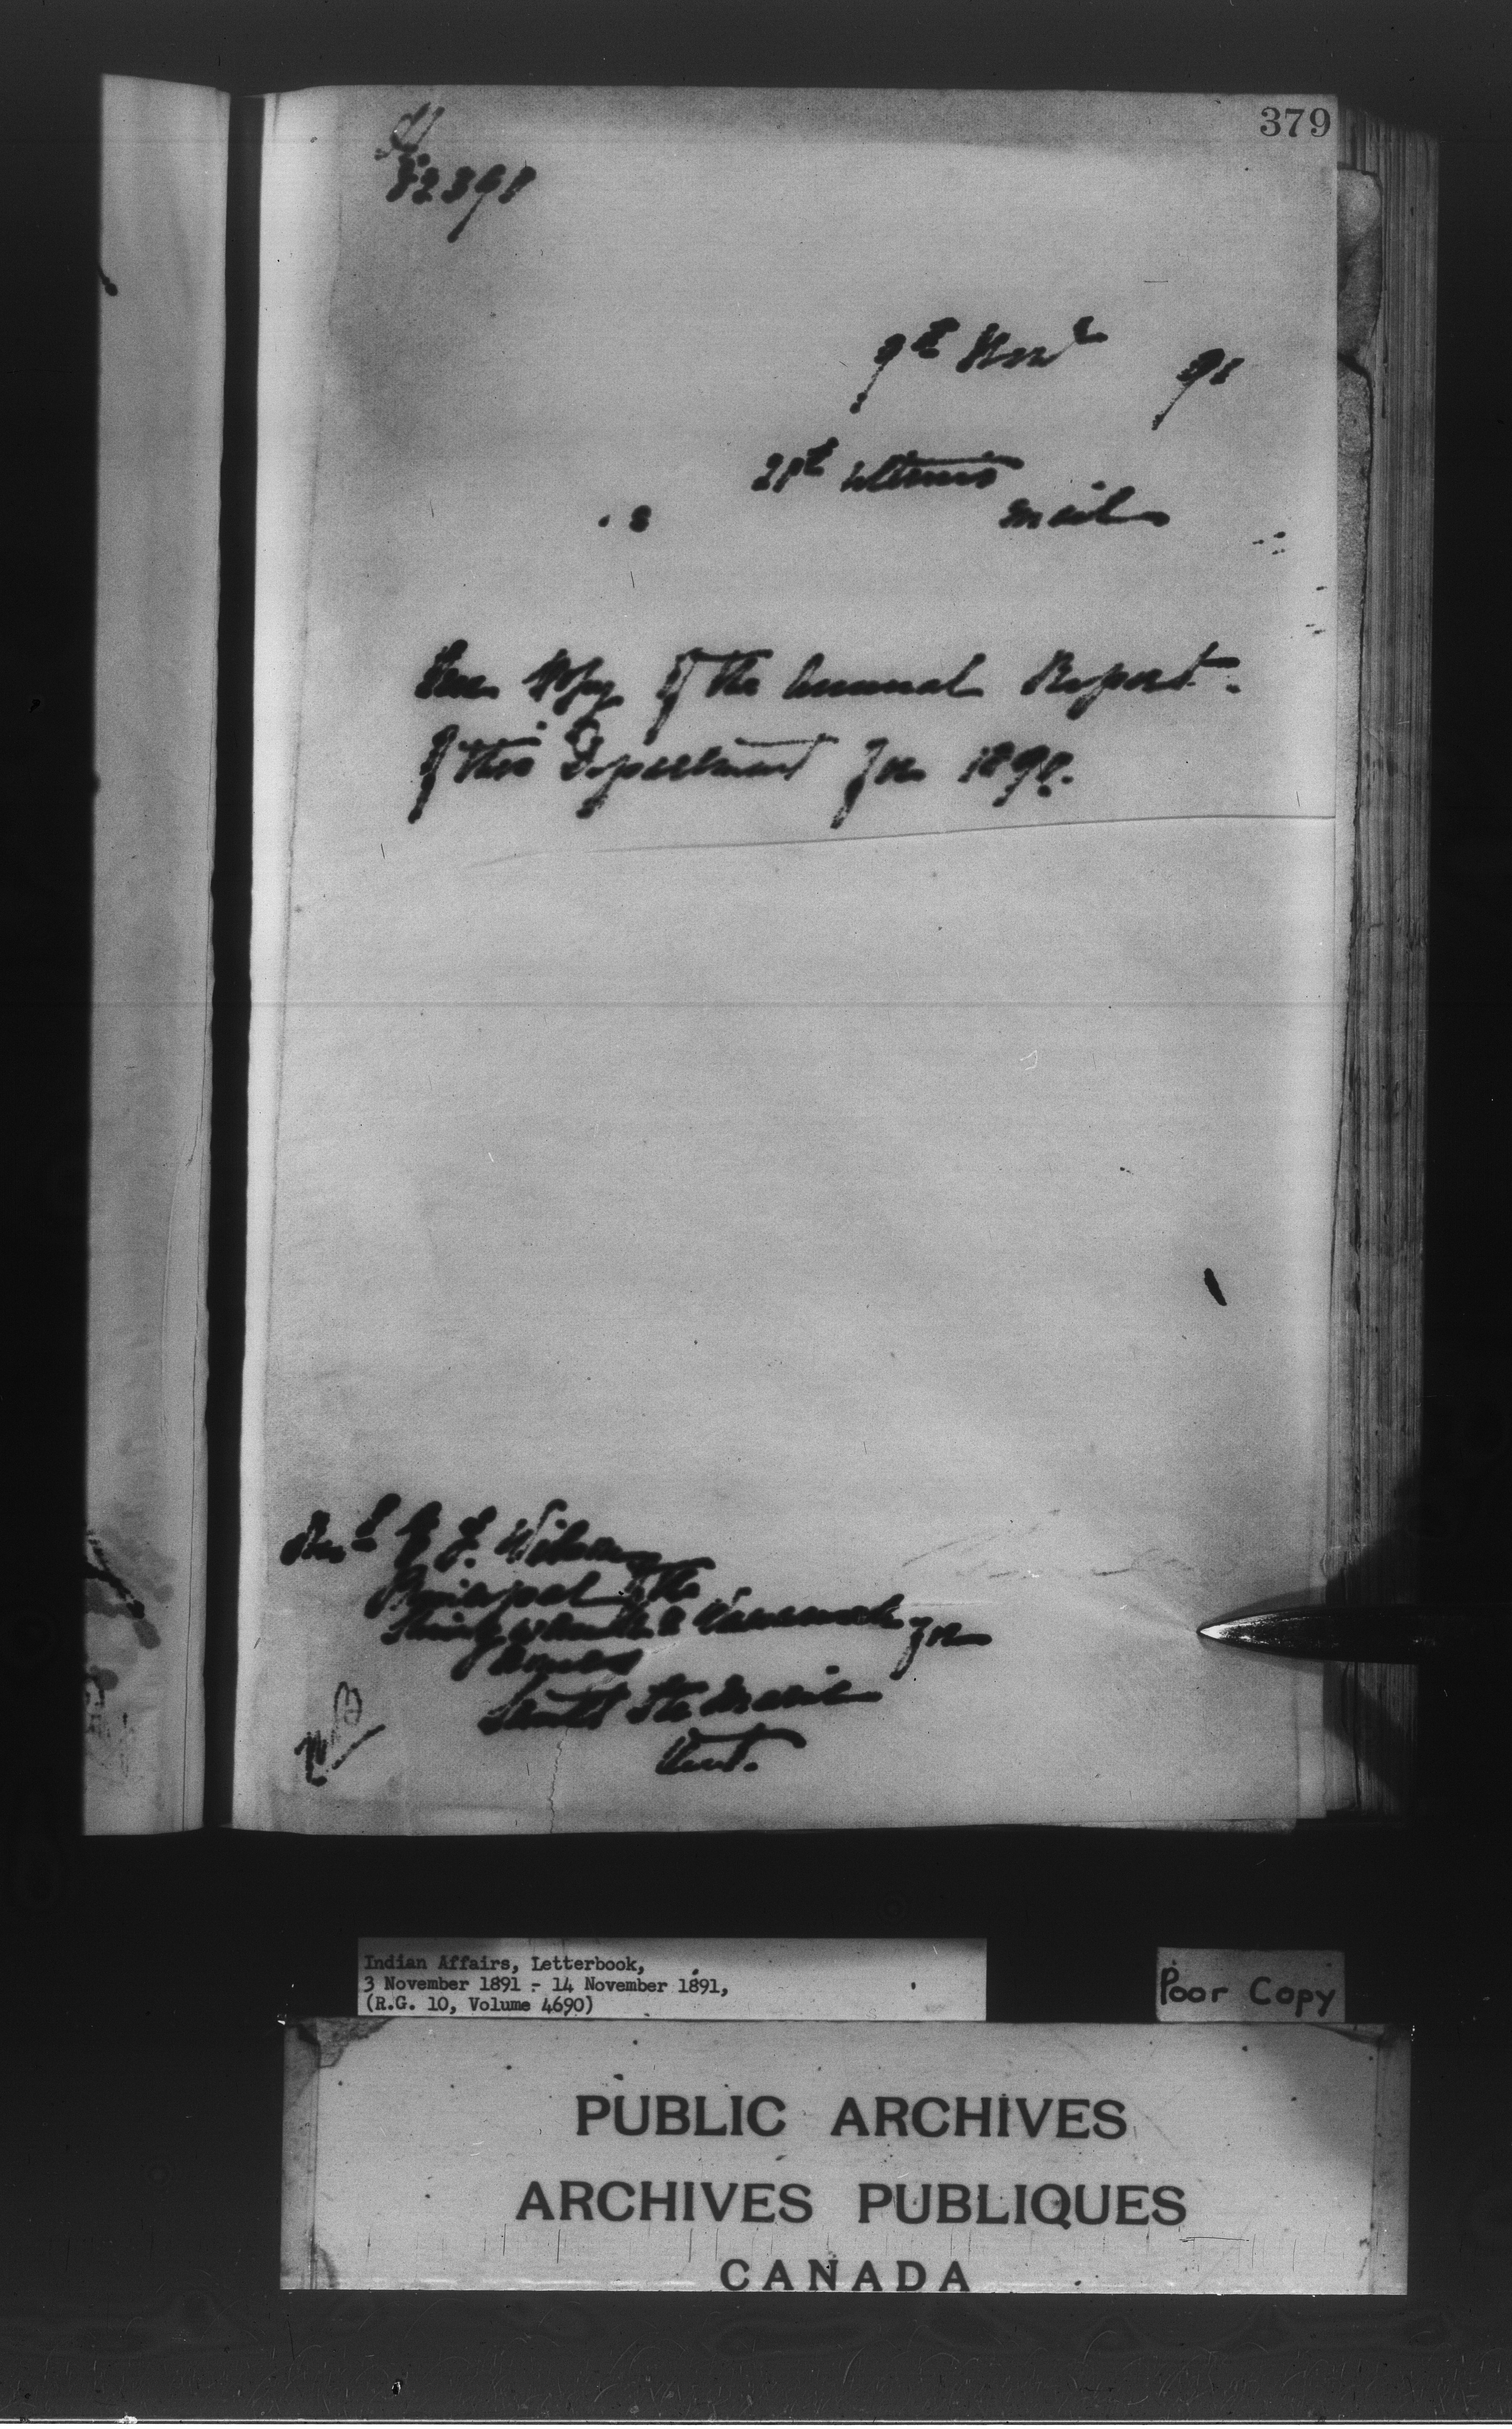 379
82398
9th Novr 91
28th ultimo
mail
Copy of the Annual Report
of this Department for 1890.
Revd E. F. Wilson
Principal of the
Shingwauk & Wawanosh
Homes
Sault Ste Marie
Ont.
Indian Affairs, Letterbook,
3 November 1891 - 14 November 1891,
(R.G. 10, Volume 4690)
Poor Copy
PUBLIC ARCHIVES
ARCHIVES PUBLIQUES
CANADA